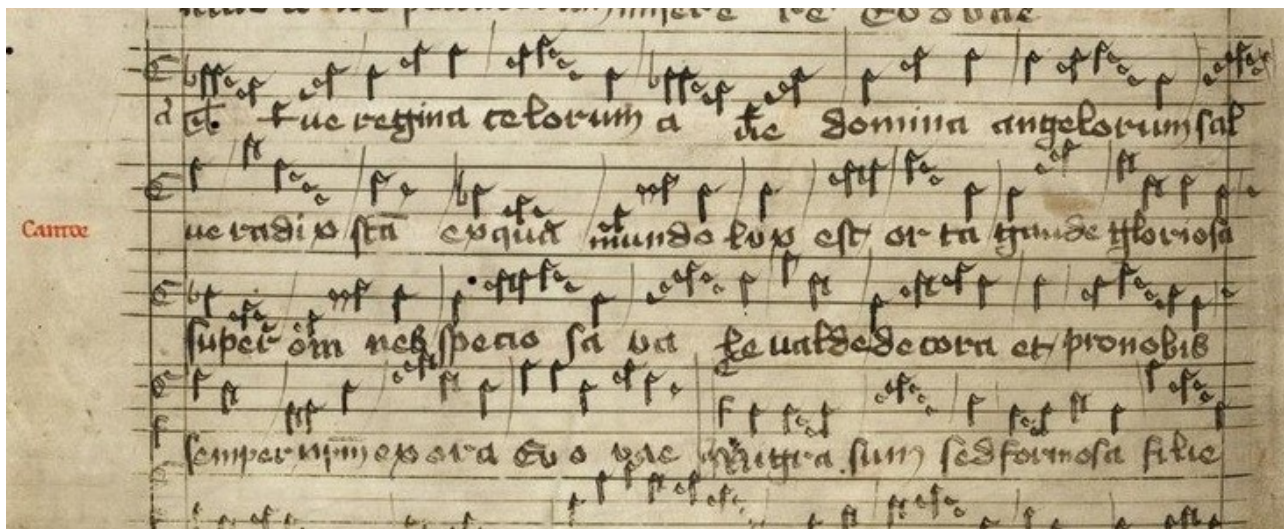 Euovae
ue regina celorum a ue domina angelorum sal
Cantoe
ue radix sca ex qua mundo lux est orta gaude gloriosa
super om nes specio sa va le ualde decora et pro nobis
semper exora Euo vae Nigra sum sed formosa filie